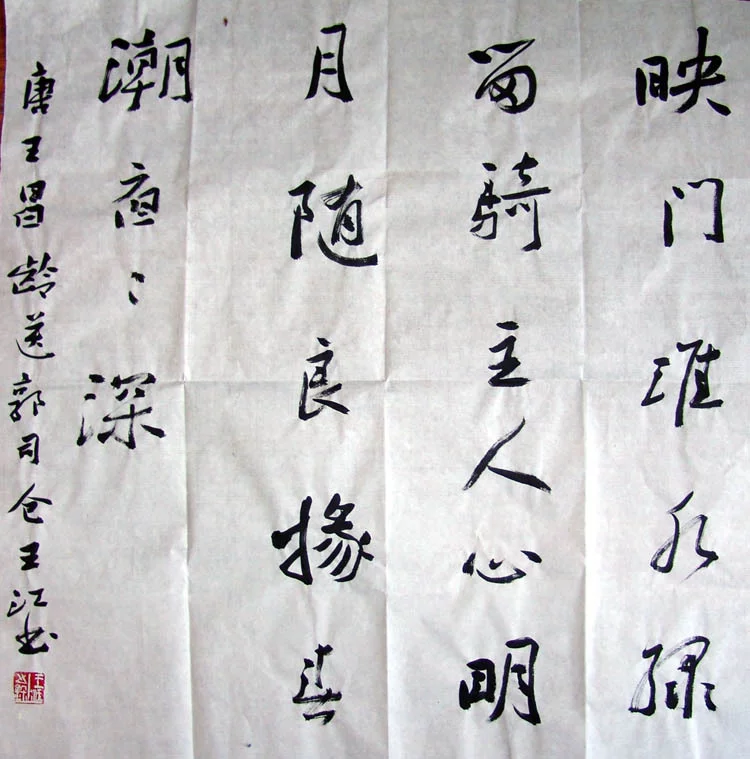 映门淮水绿
留騎主人心明
月随良掾春
潮夜々深
唐王昌龄送郭司仓王江书